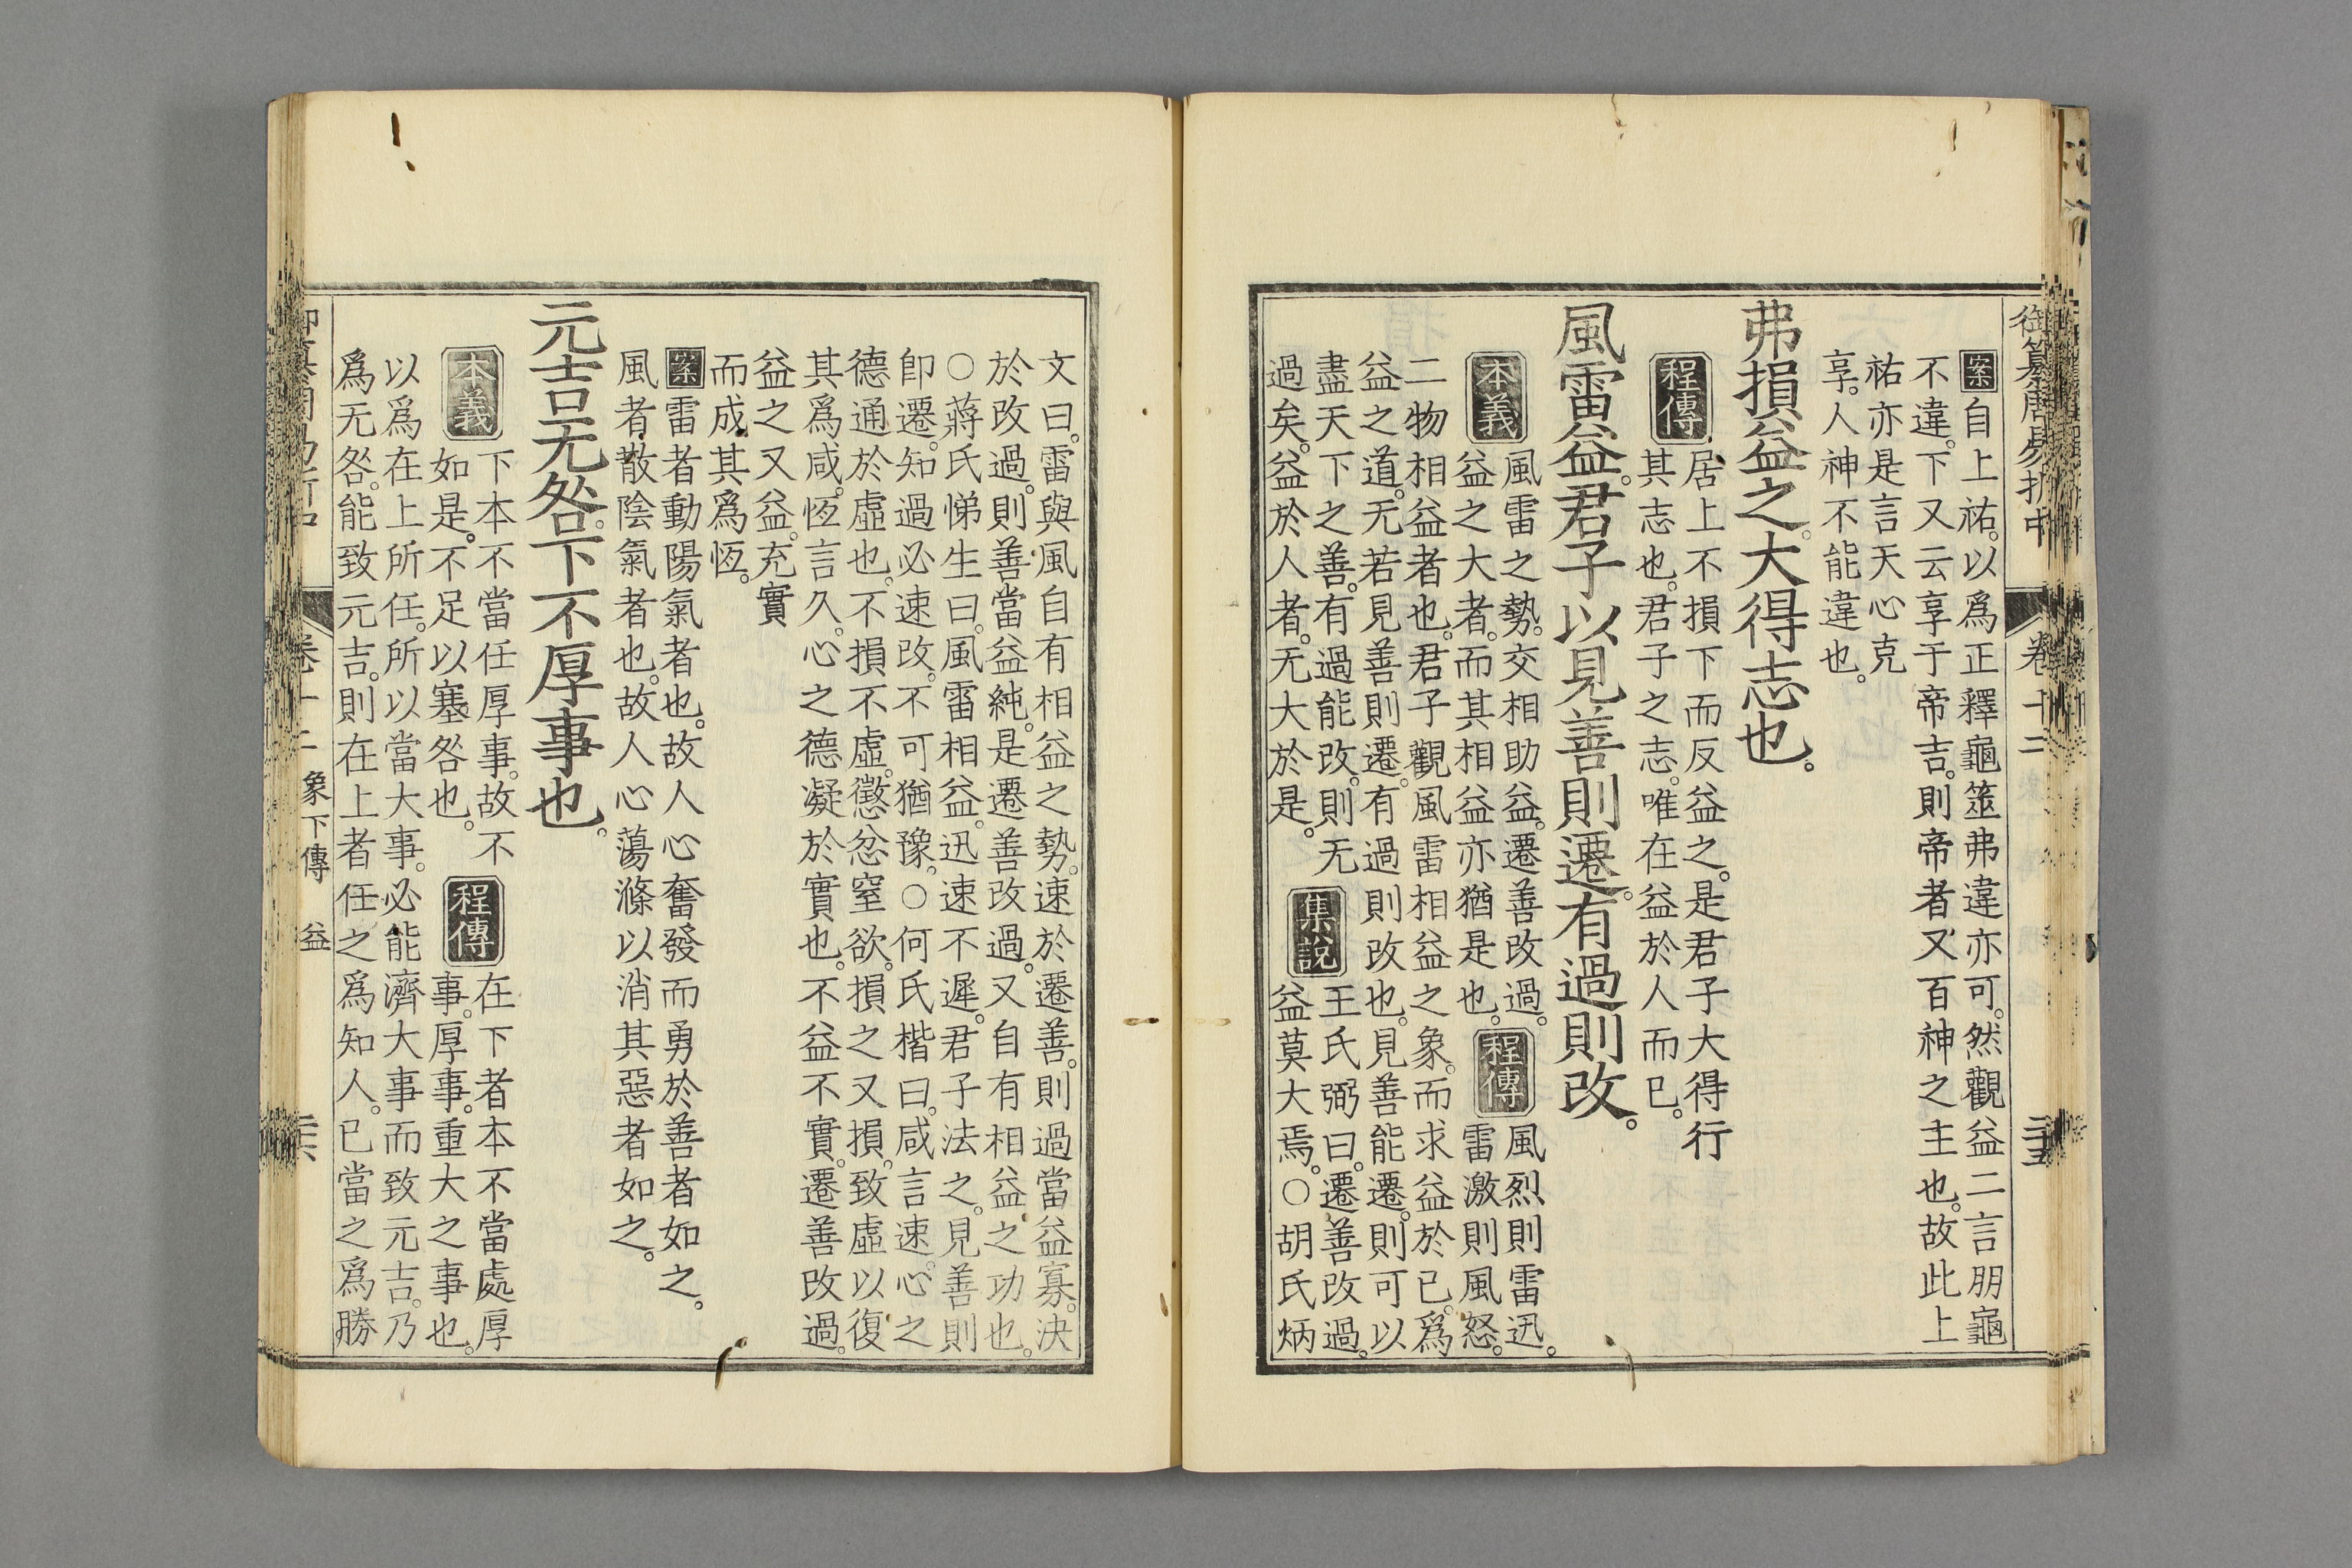 御纂周易折中 卷十二 三十五
案自上祐。以爲正釋龜筮弗違亦可。然觀益二言朋龜
不違。下又云享于帝吉。則帝者又百神之主也。故此上
祐亦是言天心克
享。人神不能違也。
弗損益之。大得志也。
程傳 居上不損下而反益之。是君子大得行
其志也。君子之志。唯在益於人而已。
風雷益。君子以見善則遷。有過則改。
本義 風雷之勢。交相助益。遷善改過。
益之大者。而其相益亦猶是也。
程傳 風烈則雷迅。
雷激則風怒。
二物相益者也。君子觀風雷相益之象。而求益於已。爲
益之道。无若見善則遷。有過則改也。見善能遷。則可以
盡天下之善。有過能改。則无
過矣。益於人者。无大於是。
集說 王氏弼曰。遷善改過。
益莫大焉。○胡氏炳
文曰。雷與風自有相益之勢。速於遷善。則過當益寡。決
於改過。則善當益純。是遷善改過。又自有相益之功也。
○蔣氏悌生曰。風雷相益。迅速不遲。君子法之。見善則
卽遷。知過必速改。不可猶豫。○何氏楷曰。咸言速。心之
德通於虛也。不損不虛。懲忿窒欲。損之又損。致虛以復
其爲咸。恆言久。心之德凝於實也。不益不實。遷善改過。
益之又益。充實
而成其爲恆。
案雷者動陽氣者也。故人心奮發而勇於善者如之。
風者散陰氣者也。故人心蕩滌以消其惡者如之。
元吉无咎。下不厚事也。
本義 下本不當任厚事。故不
如是。不足以塞咎也。
程傳 在下者本不當處厚
事。厚事。重大之事也。
以爲在上所任。所以當大事。必能濟大事而致元吉。乃
爲无咎。能致元吉。則在上者任之爲知人。已當之爲勝
卷十二 象下傳 益